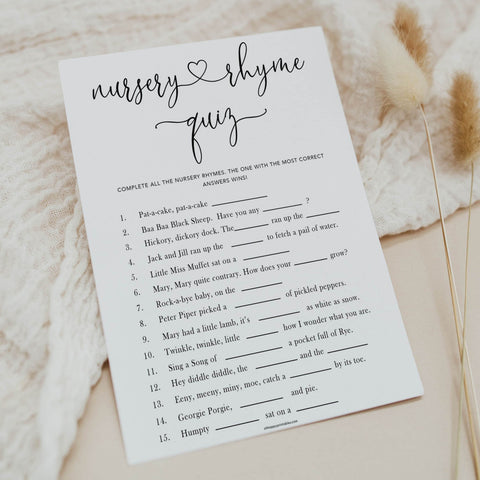 nursery rhyme
quiz
COMPLETE ALL THE NURSERY RHYMES. THE ONE WITH THE MOST CORRECT
ANSWERS WINS!
1. Pat-a-cake, pat-a-cake ____________
2. Baa Baa Black Sheep. Have you any ________ ?
3. Hickory, dickory dock. The_______ ran up the _______
4. Jack and Jill ran up the _______ to fetch a pail of water.
5. Little Miss Muffet sat on a __________
6. Mary, Mary quite contrary. How does your _______ grow?
7. Rock-a-bye baby, on the _________
8. Peter Piper picked a __________ of pickled peppers.
9. Mary had a little lamb, it's ________ as white as snow.
10. Twinkle, twinkle, little _______ how I wonder what you are.
11. Sing a Song of ____________ a pocket full of Rye.
12. Hey diddle diddle, the _______ and the _________
13. Eeny, meeny, miny, moe, catch a _________ by its toe.
14. Georgie Porgie, _________ and pie.
15. Humpty _________ sat on a _________